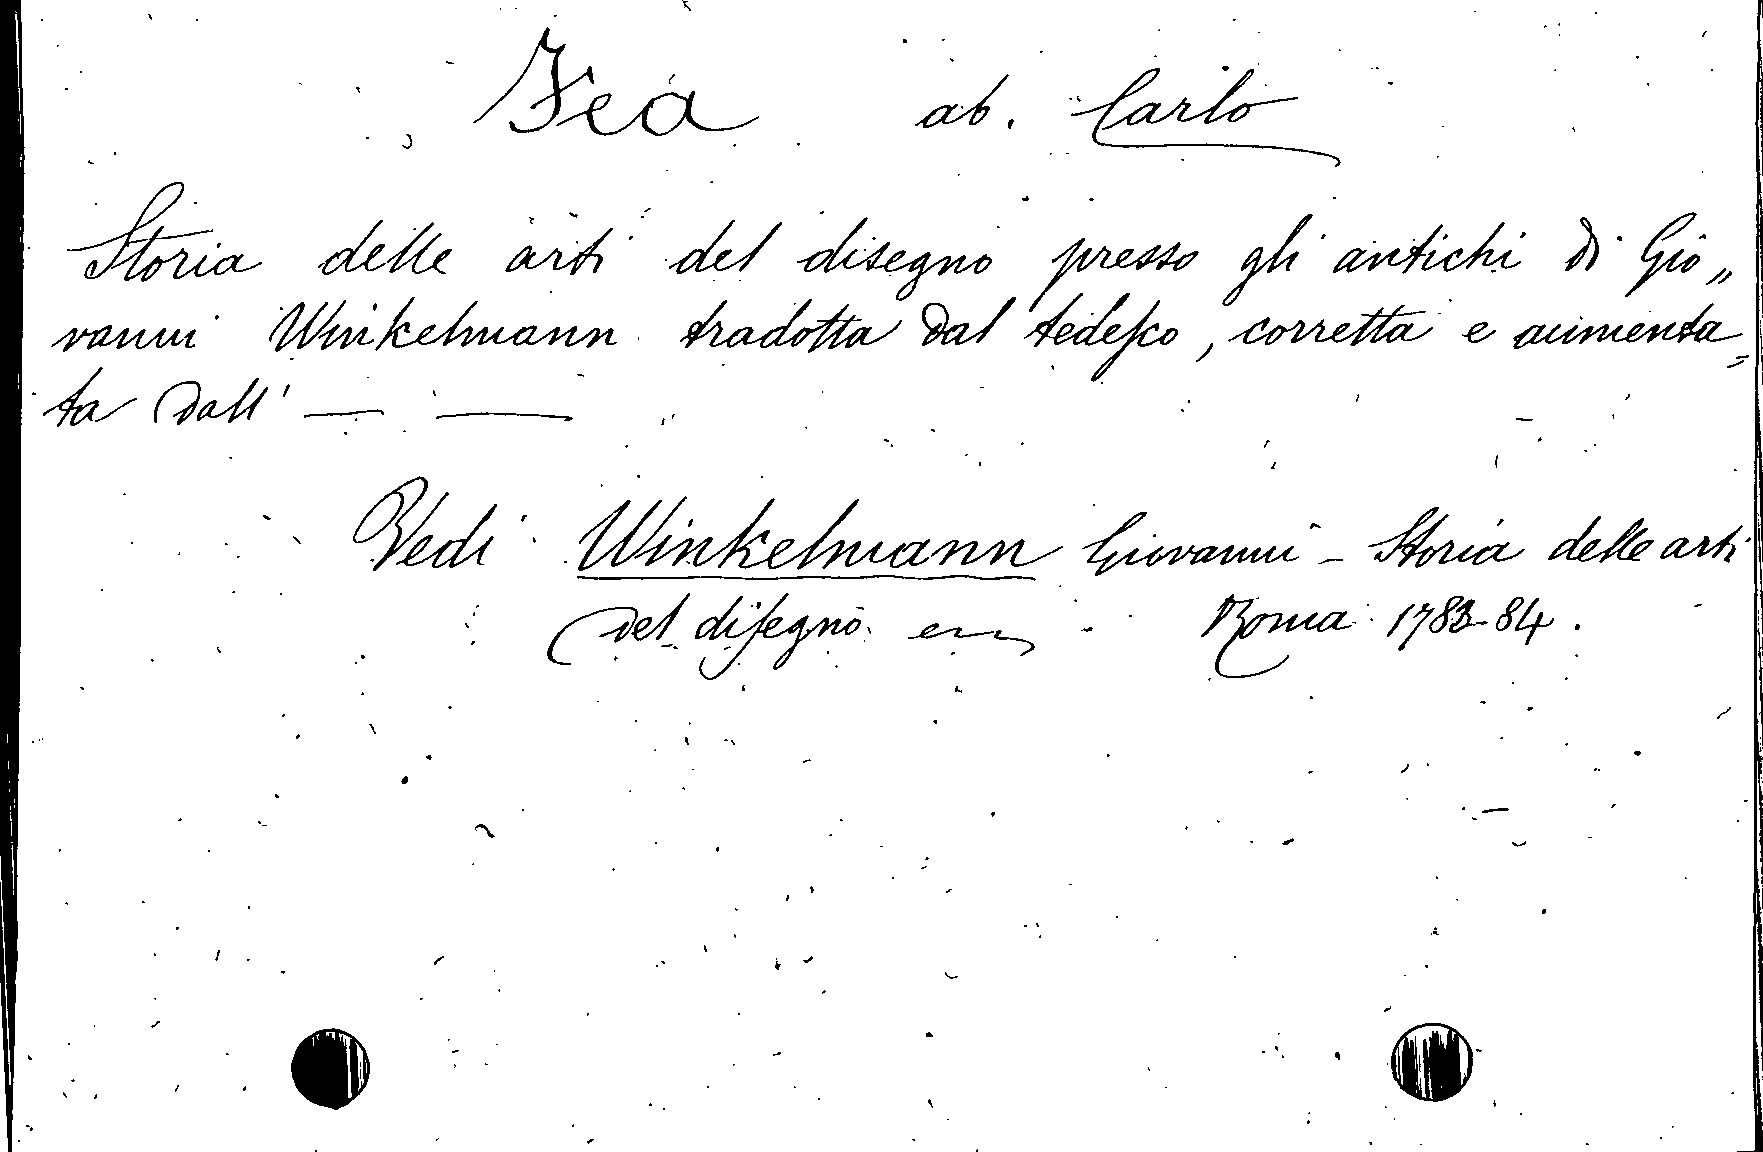 Fea ab. Carlo
Storia delle arti del disegno presso gli antichi di Gio„
vanni Winkelmann tradotta dal tedesco, corretta e aumenta„
ta dall' — —
Vedi Winkelmann Giovanni - Storia delle arti
del disegno Roma 1783-84.